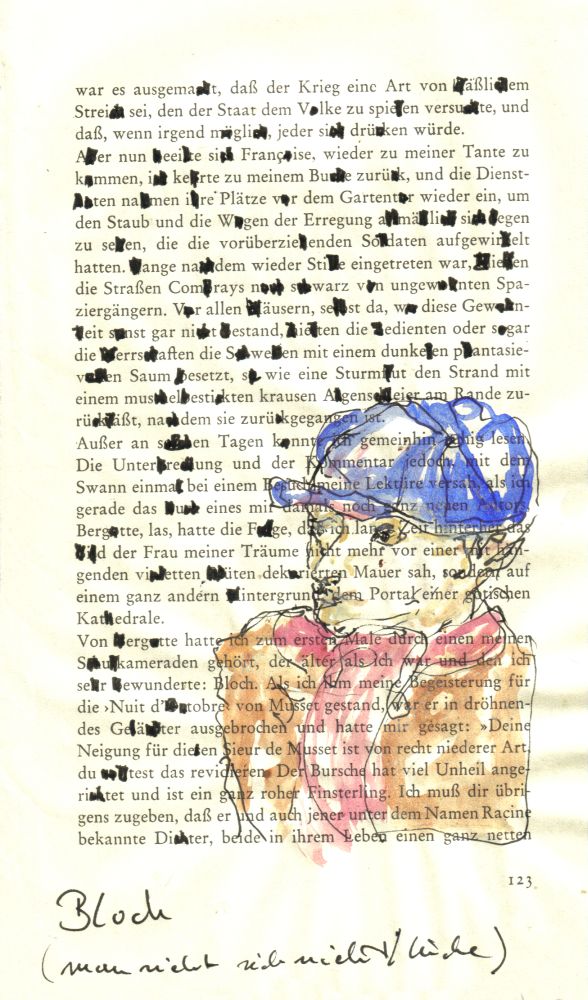 war es ausgemacht, daß der Krieg eine Art von häßlichem
Streich sei, den der Staat dem Volke zu spielen versuchte, und
daß, wenn irgend möglich, jeder sich drücken würde.
Aber nun beeilte sich Françoise, wieder zu meiner Tante zu
kommen, ich kehrte zu meinem Buche zurück, und die Dienst-
boten nahmen ihre Plätze vor dem Gartentor wieder ein, um
den Staub und die Wogen der Erregung allmählich sich legen
zu sehen, die die vorüberziehenden Soldaten aufgewirbelt
hatten. Lange nachdem wieder Stille eingetreten war, blieben
die Straßen Combrays noch schwarz von ungewohnten Spa-
ziergängern. Vor allen Häusern, selbst da, wo diese Gewohn-
heit sonst gar nicht bestand, hielten die Bedienten oder sogar
die Herrschaften die Schwellen mit einem dunkelen phantasie-
vollen Saum besetzt, so wie eine Sturmflut den Strand mit
einem muschelbestickten krausen Algenschleier am Rande zu-
rückläßt, nachdem sie zurückgegangen ist.
Außer an solchen Tagen konnte ich gemeinhin ruhig lesen.
Die Unterbrechung und der Kommentar jedoch, mit dem
Swann einmal bei einem Besuch meine Lektüre versah, als ich
gerade das Buch eines mir damals noch ganz neuen Autors,
Bergotte, las, hatte die Folge, daß ich lange Zeit hinterher das
Bild der Frau meiner Träume nicht mehr vor einer mit hän-
genden violetten Blüten dekorierten Mauer sah, sondern auf
einem ganz andern Hintergrund, dem Portal einer gotischen
Kathedrale.
Von Bergotte hatte ich zum ersten Male durch einen meiner
Schulkameraden gehört, der älter als ich war und den ich
sehr bewunderte: Bloch. Als ich ihm meine Begeisterung für
die ›Nuit d'Octobre‹ von Musset gestand, war er in dröhnen-
des Gelächter ausgebrochen und hatte mir gesagt: »Deine
Neigung für diesen Sieur de Musset ist von recht niederer Art,
du solltest das revidieren. Der Bursche hat viel Unheil ange-
richtet und ist ein ganz roher Finsterling. Ich muß dir übri-
gens zugeben, daß er und auch jener unter dem Namen Racine
bekannte Dichter, beide in ihrem Leben einen ganz netten
123
Bloch
(man riecht sich nicht /